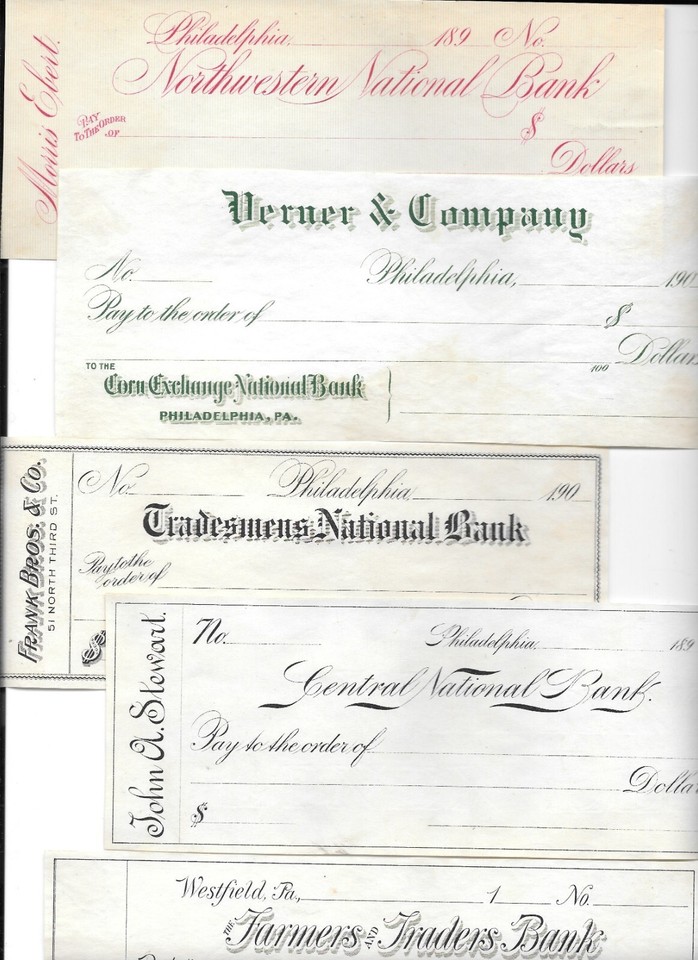 Morris Ebert.
Philadelphia, 189 No.
Northwestern National Bank
PAY
TO THE ORDER
OF
$
Dollars
Verner & Company
No. Philadelphia, 190
Pay to the order of $
100 Dollars
TO THE
Corn Exchange National Bank
PHILADELPHIA, PA.
FRANK BROS. & CO.
51 NORTH THIRD ST.
No. Philadelphia, 190
Tradesmens National Bank
Pay to the
order of
$
John A. Stewart.
No. Philadelphia, 189
Central National Bank.
Pay to the order of
Dollar
$
Westfield, Pa., 1 No.
THE Farmers AND Traders Bank